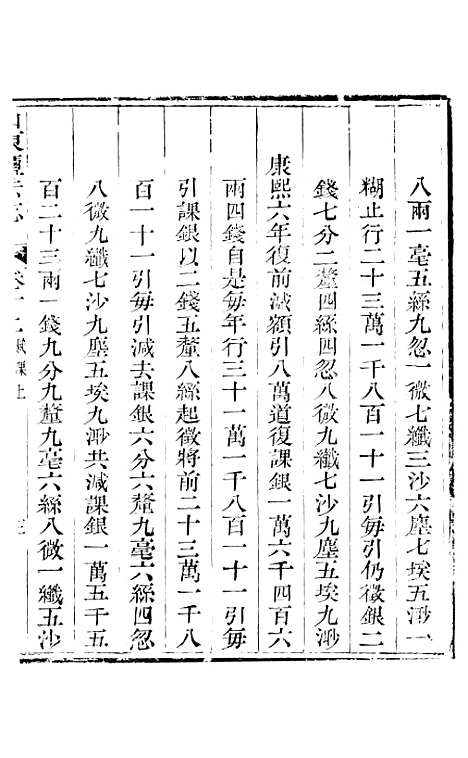 八兩一毫五絲九忽一微七纖三沙六塵七埃五渺一
糊止行二十三萬一千八百一十一引每引仍徵銀二
錢七分二釐四絲四忽八微九纖七沙九塵五埃九渺
康熙六年復前減額引八萬道復課銀一萬六千四百六
兩四錢自是每年行三十一萬一千八百一十一引每
引課銀以二錢五釐八絲起徵將前二十三萬一千八
百一十一引每引減去課銀六分六釐九毫六絲四忽
八微九纖七沙九塵五埃九渺共減課銀一萬五千五
百二十三兩一錢九分九釐九毫六絲八微一纖五沙
山東鹽法志 卷十二賦課上 三